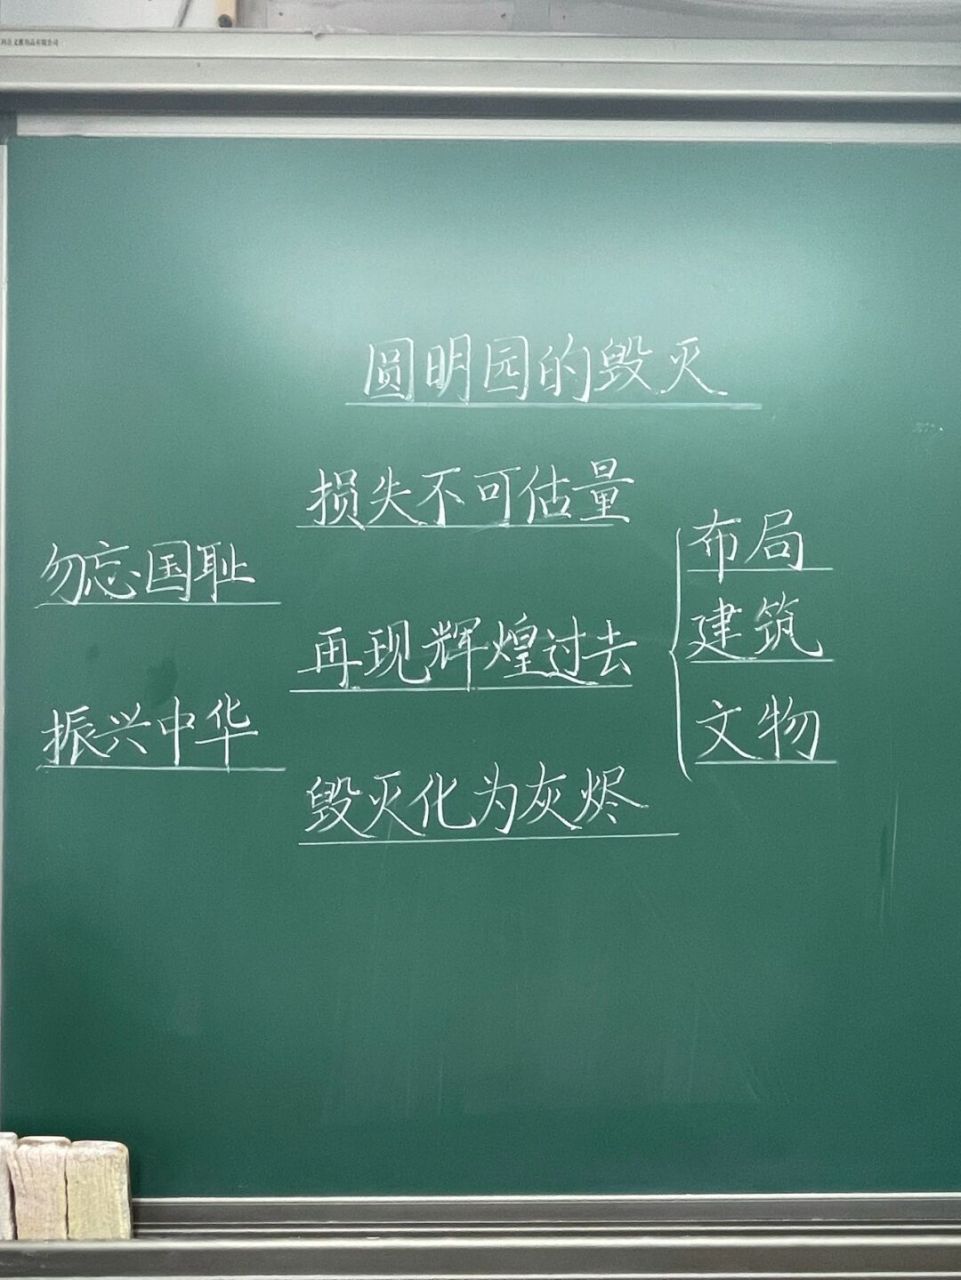 圆明园的毁灭
损失不可估量
勿忘国耻
再现辉煌过去
振兴中华
毁灭化为灰烬
布局
建筑
文物